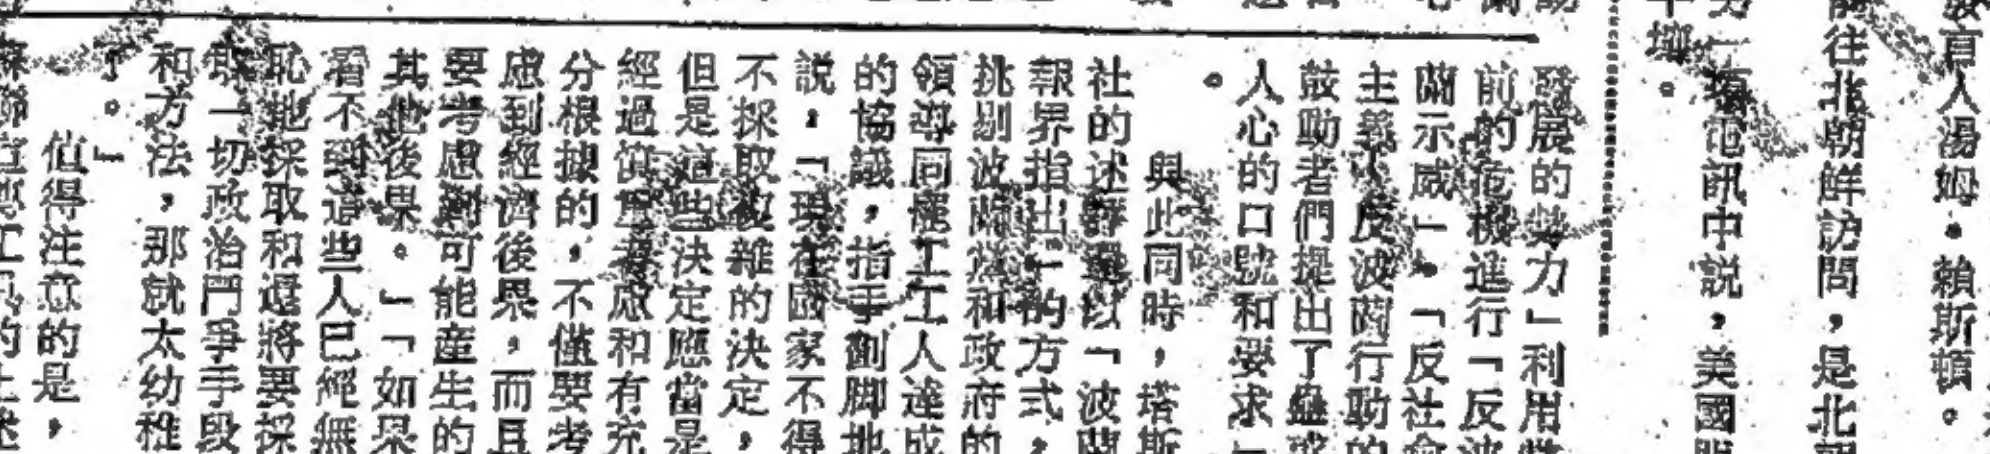 人湯姆·賴斯頓。
往北朝鮮訪問，是北
一項電訊中說，美國
發展的勢力」利用
前的危機進行「反波
蘭示威」。「反社會
主義、反波蘭行動的
鼓動者們提出了蠱惑
人心的口號和要求」
。
與此同時，塔斯
社的述評還以「波蘭
報界指出」的方式，
挑剔波蘭當和政府的
領導同罷工工人達成
的協議，指手劃脚地
説，「現在國家不得
不採取複雜的決定，
但是這些決定應當是
經過慎重考慮和有充
分根據的，不僅要考
慮到經濟後果，而且
要考慮到可能産生的
其他後果。」「如果
看不到這些人已經無
恥地採取和還將要採
取一切政治鬥爭手段
和方法，那就太幼稚
了。」
值得注意的是，